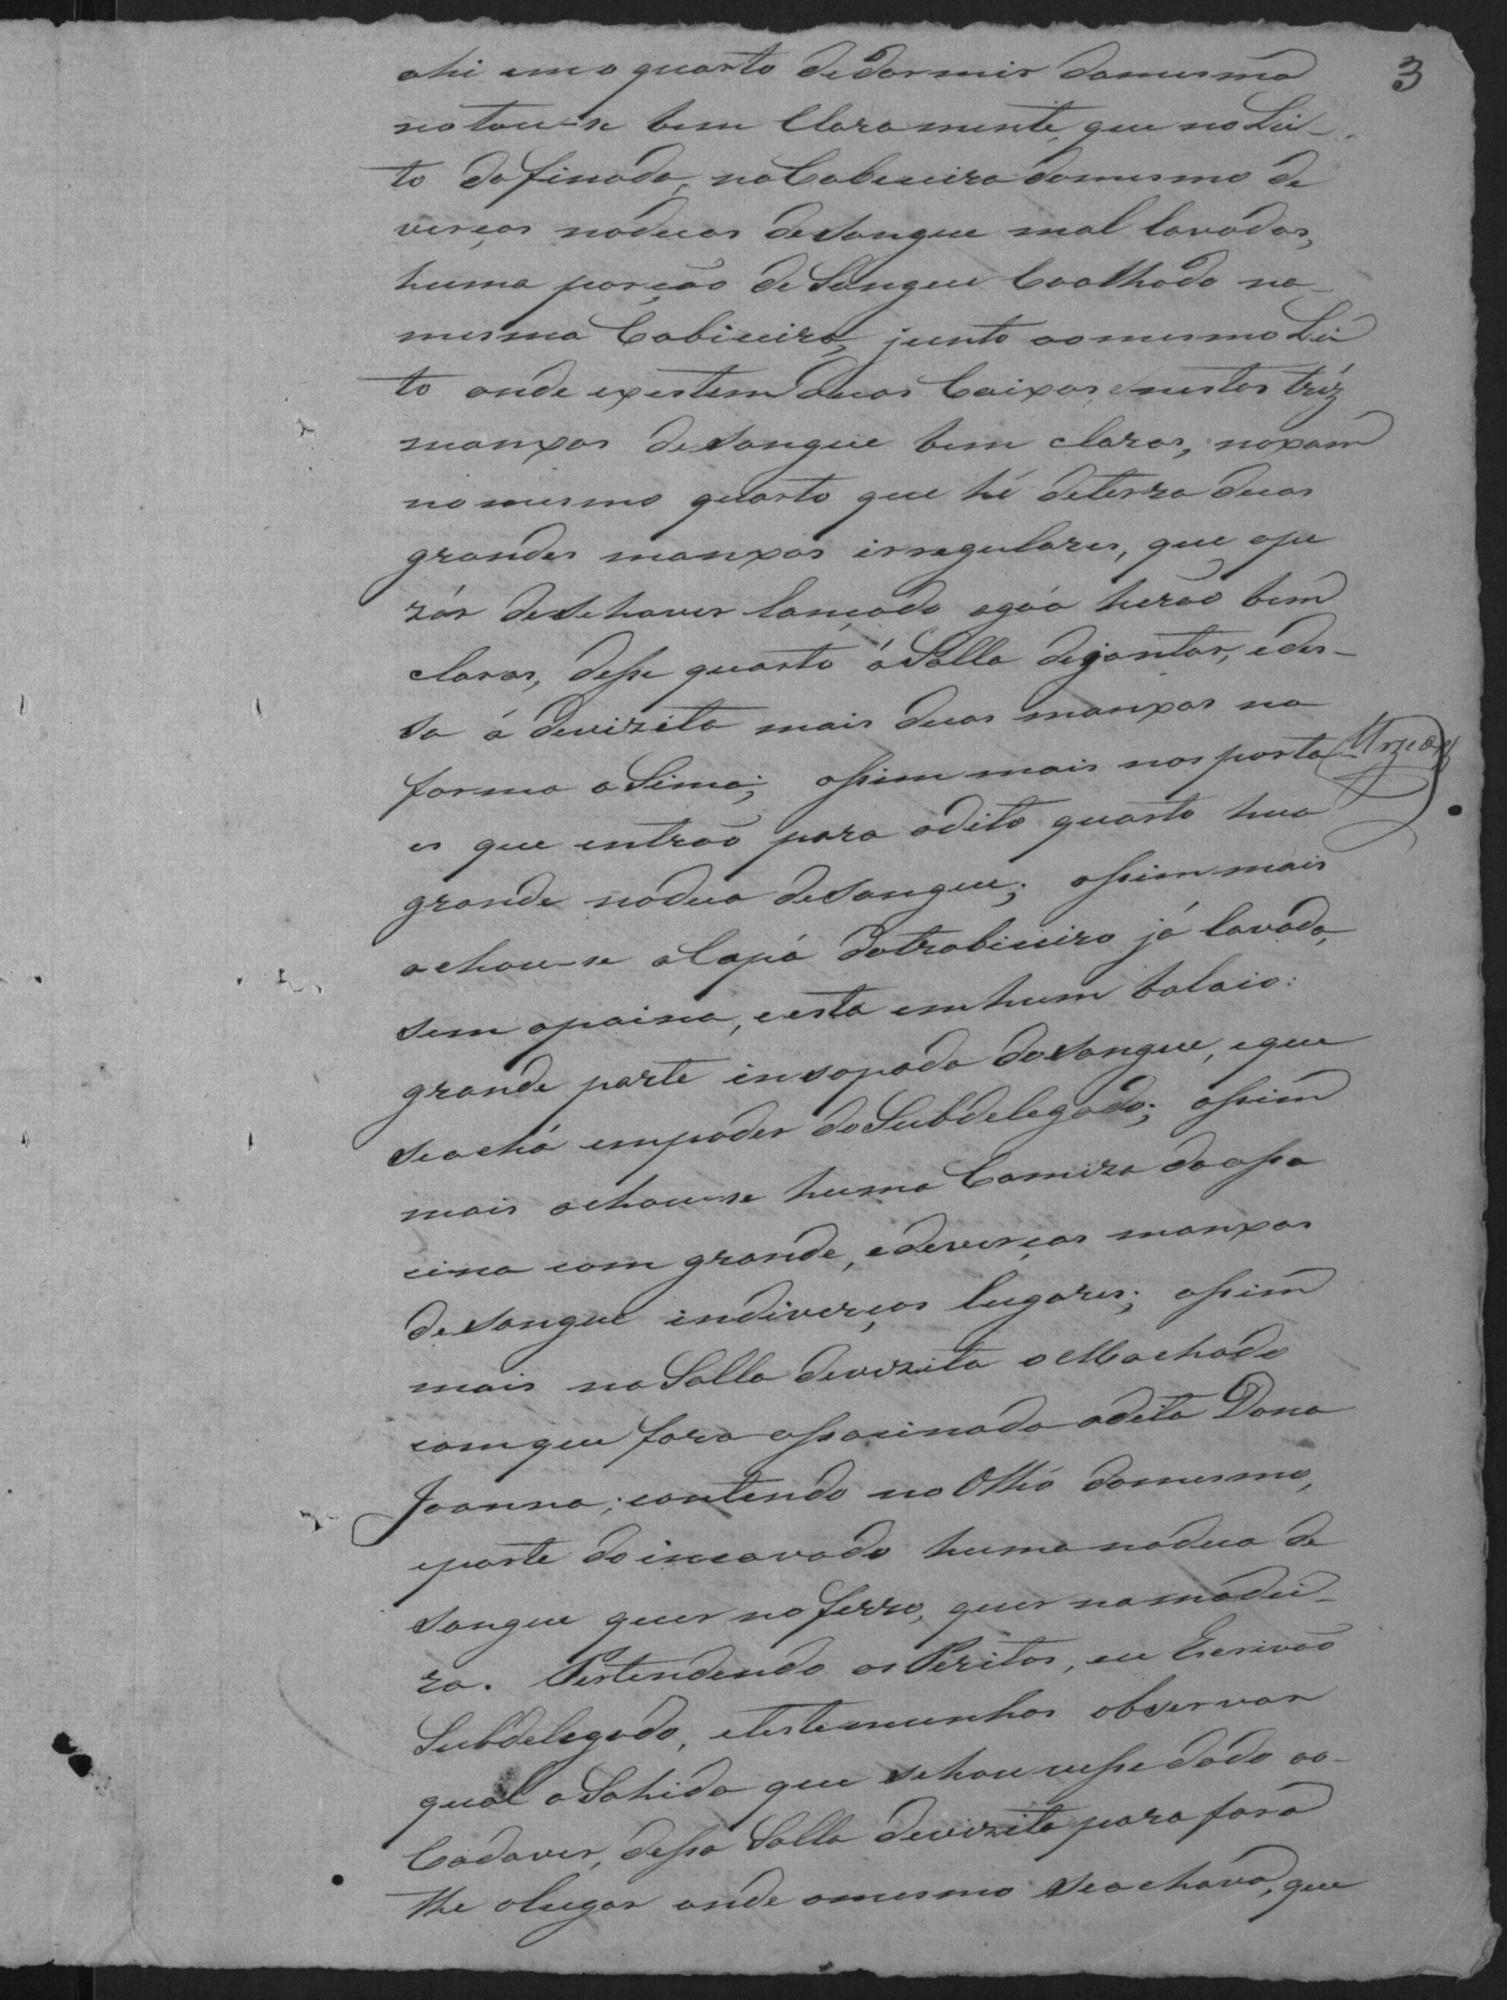 3
ahi em o quarto de dormir damesma
notou-se bem Claramente, que no Lei-
to da finada, na Cabiceira domesmo de
verças noduas desangue mal lavadas,
huma porção de Sangue Coalhado na
mesma Cabiceira, junto ao mesmo Lei
to onde exestem duas Caixas, enestas tréz
manxas desangue bem claras, no xam
no mesmo quarto que hé deterra duas
grandes manxas irregulares, que ape
zár desehaver lançado agoá herão bem
claras, desse quarto á Salla dejantar, edes-
sa á devizita mais duas manxas na
forma aSima; assim mais nas porta
es que entrão para odito quarto hua
grande nodua desangue; assim mais
achou-se aCapá dotrabiceiro já lavada,
sem apaina, eesta emhum balaio:
grande parte insopada desangue, eque
seachá empoder doSubdelegado; assim
mais achou-se huma Camiza daassa
cina com grande, edeverças manxas
desangue indiverços lugares; assim
mais na Salla devizita oMachado
comque fora assacinada adita Dona
Joanna; contendo no Olhó domesmo,
eparte do incavado huma nodua de
sangue quer no ferro, quer namadei-
ra. Pertendendo os Peritos, eu Escrivão
Subdelegado, etestemunhas observar
qual aSahida que sehouvesse dado ao-
Cadaver, dessa Salla devizita para fora
the olugar onde omesmo seachava, que